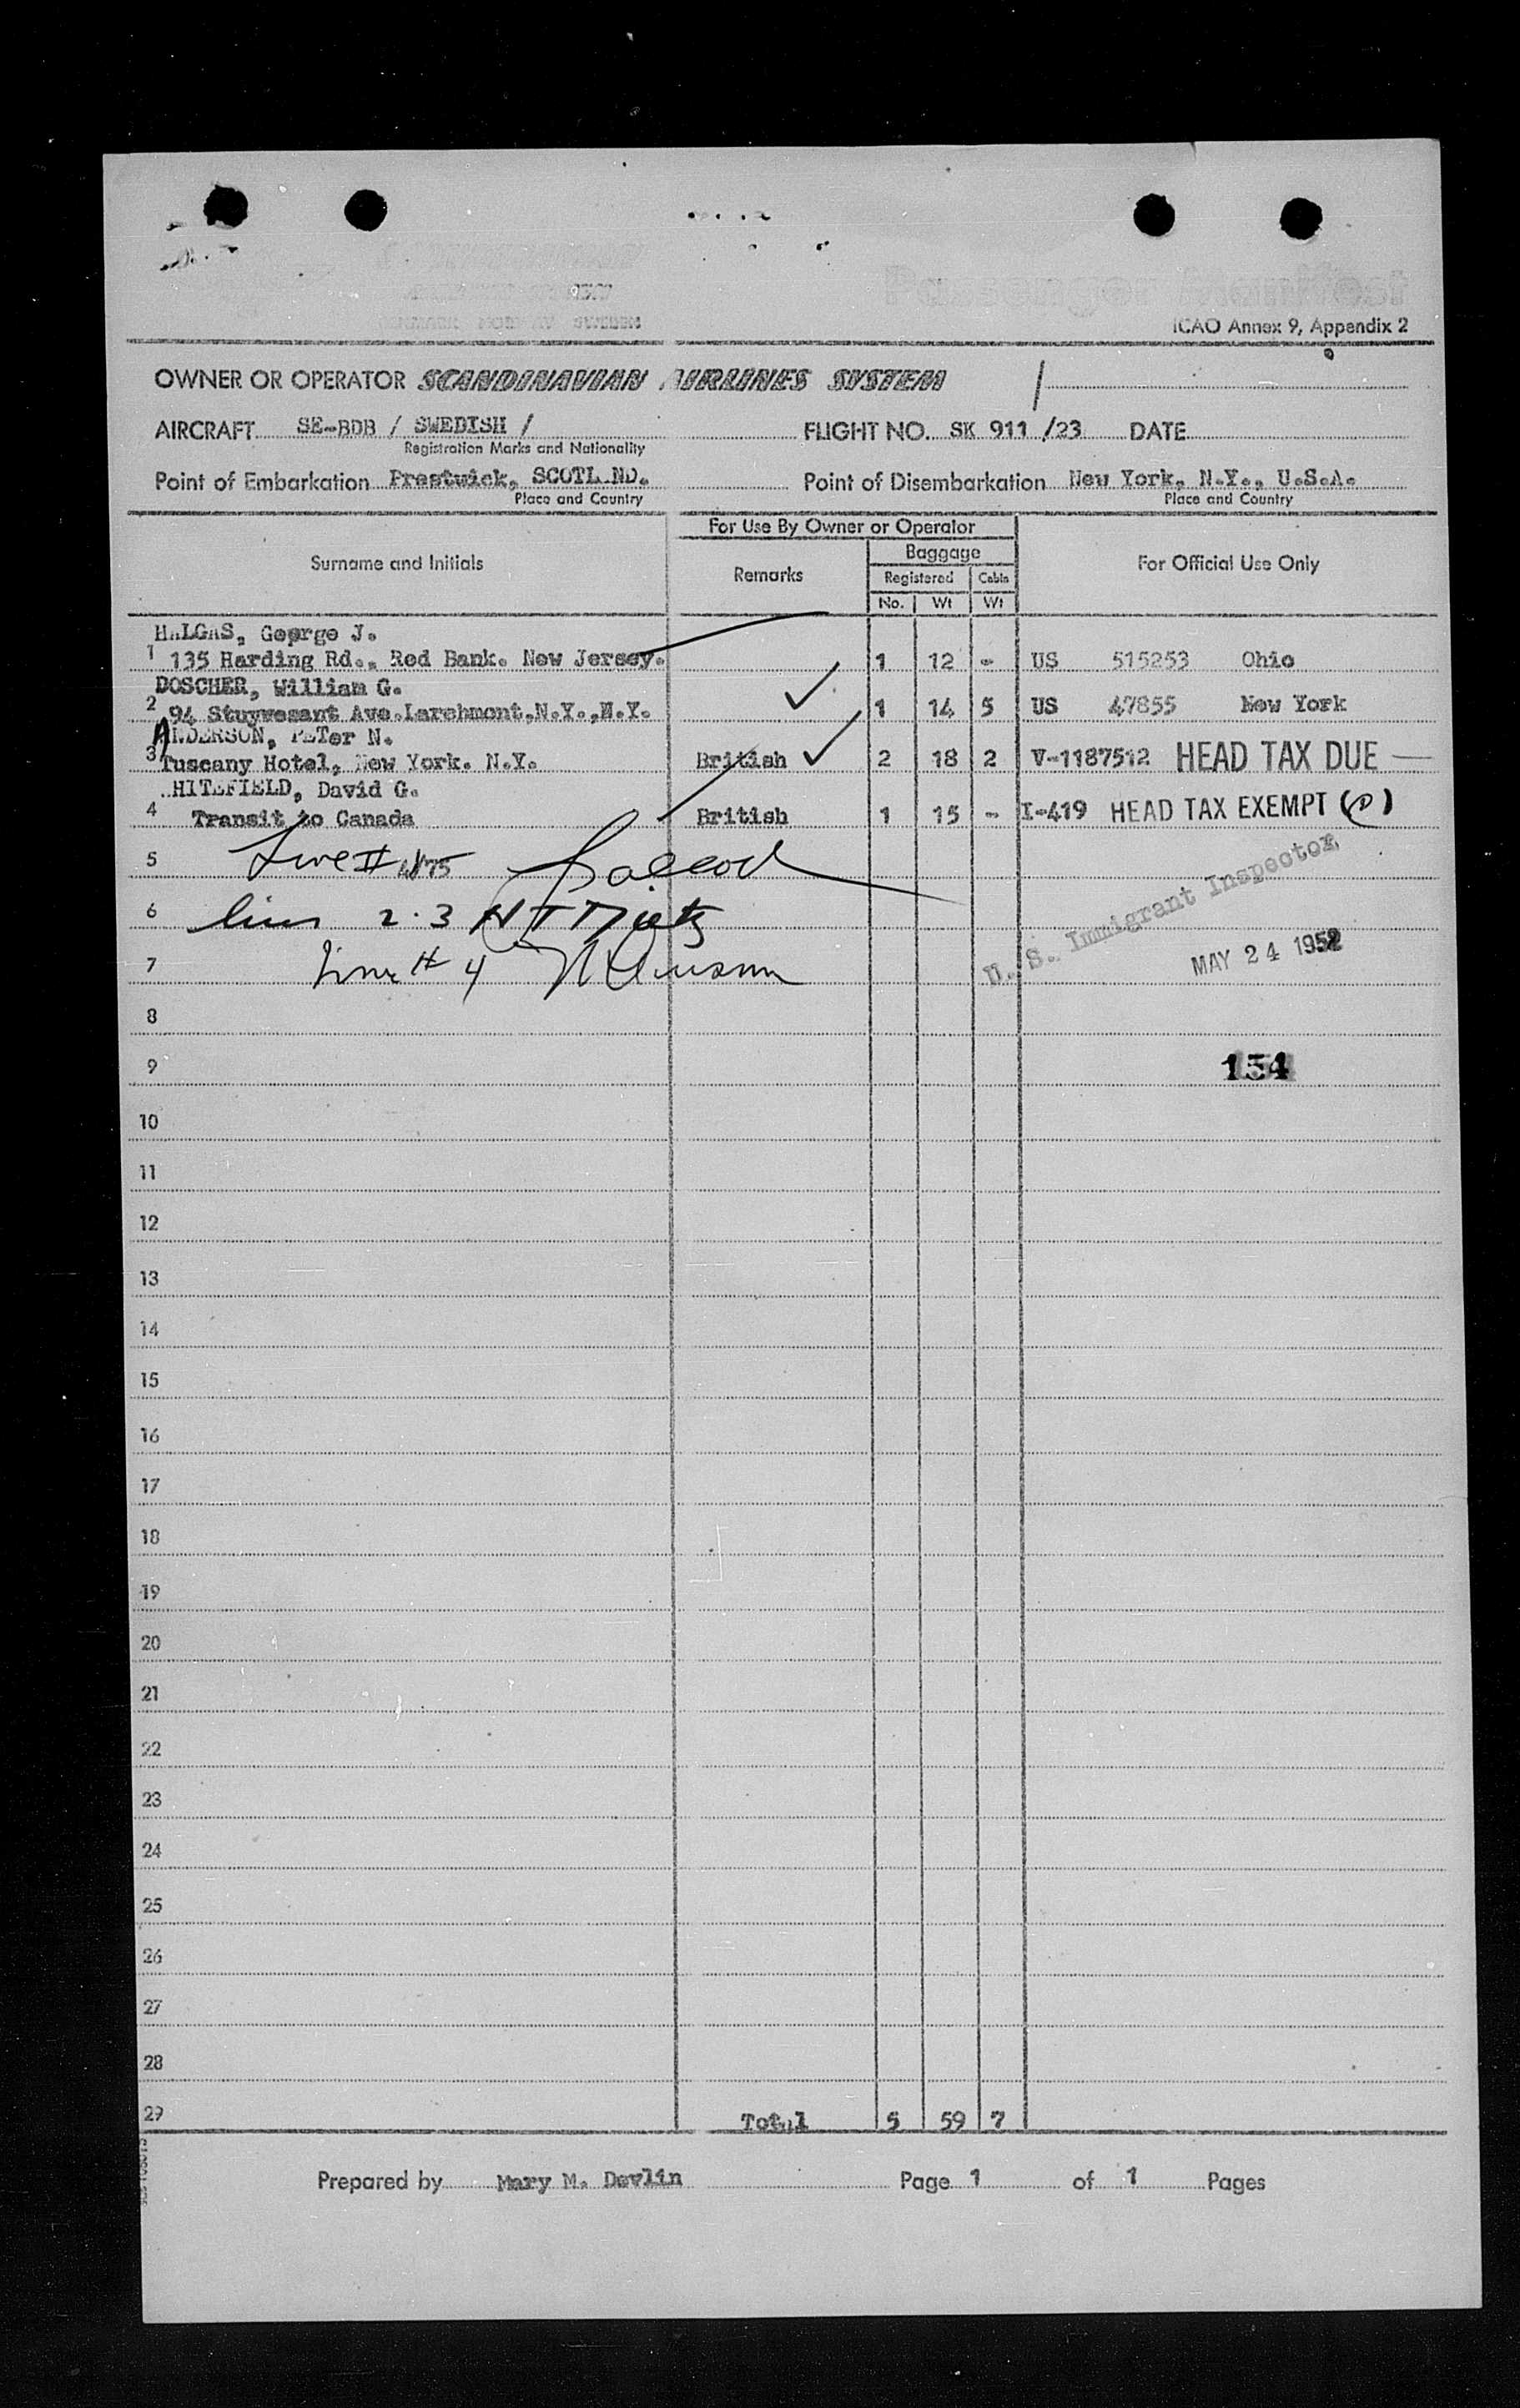 Passenger Manifest
ICAO Annex 9, Appendix 2
OWNER OR OPERATOR SCANDINAVIAN AIRLINES SYSTEM
AIRCRAFT SE-BDB / SWEDISH / FLIGHT NO. SK 911 /23 DATE
Registration Marks and Nationality
Point of Embarkation Prestwick, SCOTL.ND. Point of Disembarkation New York, N.Y., U.S.A.
Place and Country Place and Country
For Use By Owner or Operator
Surname and Initials Remarks Baggage For Official Use Only
Registered Cabin
No. Wt Wt
HALGAS, George J.
1 135 Harding Rd., Red Bank. New Jersey. 1 12 - US 515253 Ohio
DOSCHER, William G.
2 94 Stuyvesant Ave.Larchmont,N.Y.,N.Y. 1 14 5 US 47855 New York
ANDERSON, PETer N.
3 Tuscany Hotel, New York. N.Y. British 2 18 2 V-1187512 HEAD TAX DUE
HITEFIELD, David G.
4 Transit to Canada British 1 15 - I-419 HEAD TAX EXEMPT (D)
5 Line #
6 lines 2.3
7 Line # 4
U. S. Immigrant Inspector
MAY 24 1952
8
9 154
10
11
12
13
14
15
16
17
18
19
20
21
22
23
24
25
26
27
28
29 Total 5 59 7
Prepared by Mary M. Devlin Page 1 of 1 Pages